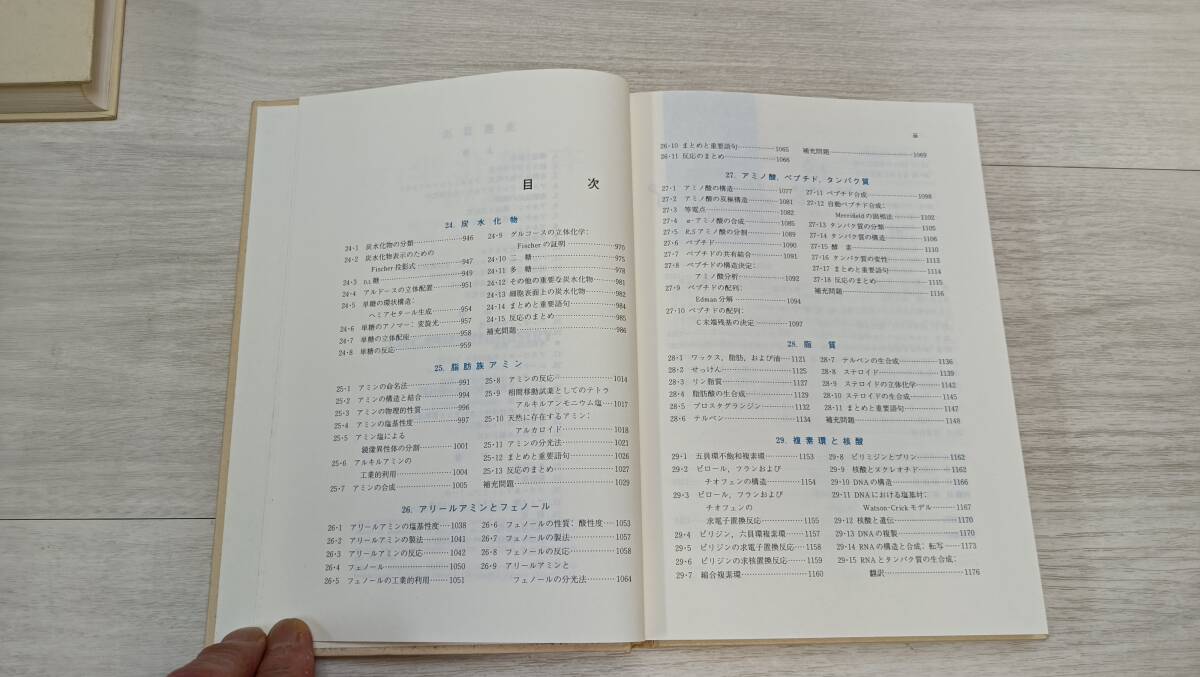 目 次
24. 炭水化物
24・1 炭水化物の分類……946
24・2 炭水化物表示のための
Fischer投影式……947
24・3 D,L糖……949
24・4 アルドースの立体配置……951
24・5 単糖の環状構造:
ヘミアセタール生成……954
24・6 単糖のアノマー: 変旋光……957
24・7 単糖の立体配座……958
24・8 単糖の反応……959
24・9 グルコースの立体化学:
Fischerの証明……970
24・10 二糖……975
24・11 多糖……978
24・12 その他の重要な炭水化物……981
24・13 細胞表面上の炭水化物……982
24・14 まとめと重要語句……984
24・15 反応のまとめ……985
補充問題……986
25. 脂肪族アミン
25・1 アミンの命名法……991
25・2 アミンの構造と結合……994
25・3 アミンの物理的性質……996
25・4 アミンの塩基性度……997
25・5 アミン塩による
鏡像異性体の分割……1001
25・6 アルキルアミンの
工業的利用……1004
25・7 アミンの合成……1005
25・8 アミンの反応……1014
25・9 相間移動試薬としてのテトラ
アルキルアンモニウム塩……1017
25・10 天然に存在するアミン:
アルカロイド……1018
25・11 アミンの分光法……1021
25・12 まとめと重要語句……1026
25・13 反応のまとめ……1027
補充問題……1029
26. アリールアミンとフェノール
26・1 アリールアミンの塩基性度……1038
26・2 アリールアミンの製法……1041
26・3 アリールアミンの反応……1042
26・4 フェノール……1050
26・5 フェノールの工業的利用……1051
26・6 フェノールの性質: 酸性度……1053
26・7 フェノールの製法……1057
26・8 フェノールの反応……1058
26・9 アリールアミンと
フェノールの分光法……1064
26・10 まとめと重要語句……1065
26・11 反応のまとめ……1066
補充問題……1069
27. アミノ酸, ペプチド, タンパク質
27・1 アミノ酸の構造……1077
27・2 アミノ酸の双極構造……1081
27・3 等電点……1082
27・4 α-アミノ酸の合成……1085
27・5 R,Sアミノ酸の分割……1089
27・6 ペプチド……1090
27・7 ペプチドの共有結合……1091
27・8 ペプチドの構造決定:
アミノ酸分析……1092
27・9 ペプチドの配列:
Edman分解……1094
27・10 ペプチドの配列:
C末端残基の決定……1097
27・11 ペプチド合成……1098
27・12 自動ペプチド合成:
Merrifieldの固相法……1102
27・13 タンパク質の分類……1105
27・14 タンパク質の構造……1106
27・15 酵素……1110
27・16 タンパク質の変性……1113
27・17 まとめと重要語句……1114
27・18 反応のまとめ……1115
補充問題……1116
28. 脂質
28・1 ワックス, 脂肪, および油……1121
28・2 せっけん……1125
28・3 リン脂質……1127
28・4 脂肪酸の生合成……1129
28・5 プロスタグランジン……1132
28・6 テルペン……1134
28・7 テルペンの生合成……1136
28・8 ステロイド……1139
28・9 ステロイドの立体化学……1142
28・10 ステロイドの生合成……1145
28・11 まとめと重要語句……1147
補充問題……1148
29. 複素環と核酸
29・1 五員環不飽和複素環……1153
29・2 ピロール, フランおよび
チオフェンの構造……1154
29・3 ピロール, フランおよび
チオフェンの
求電子置換反応……1155
29・4 ピリジン, 六員環複素環……1157
29・5 ピリジンの求電子置換反応……1158
29・6 ピリジンの求核置換反応……1159
29・7 縮合複素環……1160
29・8 ピリミジンとプリン……1162
29・9 核酸とヌクレオチド……1162
29・10 DNAの構造……1166
29・11 DNAにおける塩基対:
Watson-Crickモデル……1167
29・12 核酸と遺伝……1170
29・13 DNAの複製……1170
29・14 RNAの構造と合成: 転写……1173
29・15 RNAとタンパク質の生合成:
翻訳……1176